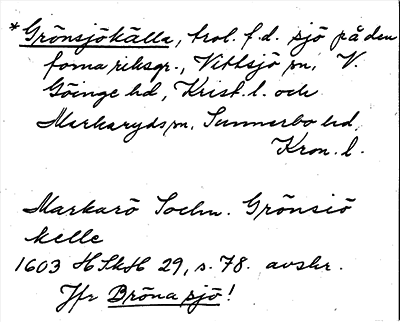 *Grönsjökälla, trol. f.d. sjö på den
forna riksgr., Vittsjö sn, V.
Göinge hd, Krist. l. och
Markaryds sn, Sunnerbo hd,
Kron. l.
Markarö Sochn. Grönsiö
kelle
1603 HSkH 29, s. 78. avskr.
Jfr Dröna sjö!